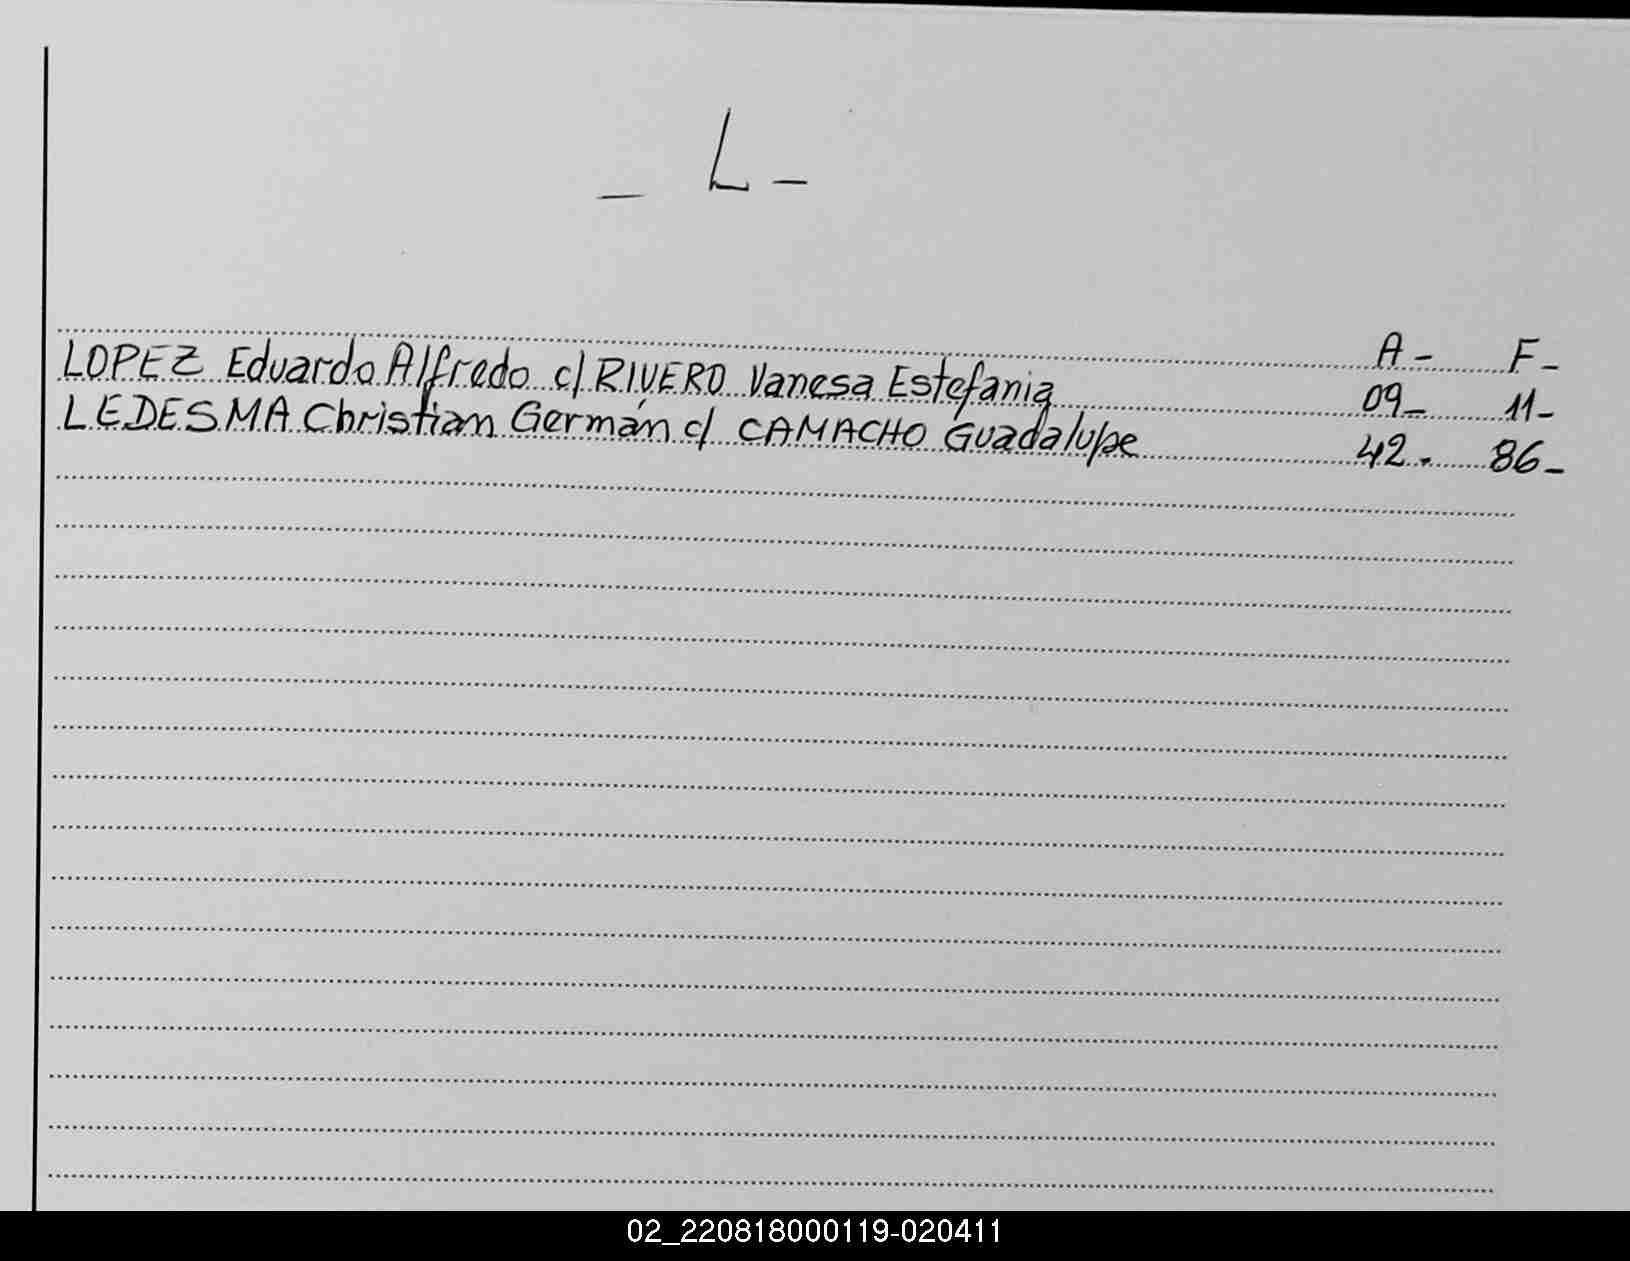 _ L _
A - F -
LOPEZ Eduardo Alfredo c/ RIVERO Vanesa Estefania 09 - 11 -
LEDESMA Christian Germán c/ CAMACHO Guadalupe 42 . 86 -
02_220818000119-020411